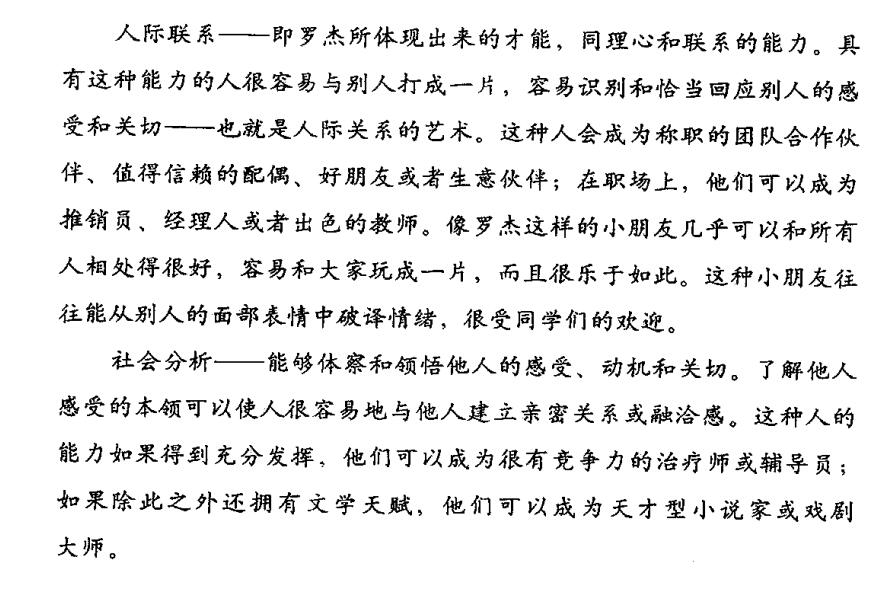 人际联系——即罗杰所体现出来的才能，同理心和联系的能力。具
有这种能力的人很容易与别人打成一片，容易识别和恰当回应别人的感
受和关切——也就是人际关系的艺术。这种人会成为称职的团队合作伙
伴、值得信赖的配偶、好朋友或者生意伙伴；在职场上，他们可以成为
推销员、经理人或者出色的教师。像罗杰这样的小朋友几乎可以和所有
人相处得很好，容易和大家玩成一片，而且很乐于如此。这种小朋友往
往能从别人的面部表情中破译情绪，很受同学们的欢迎。
社会分析——能够体察和领悟他人的感受、动机和关切。了解他人
感受的本领可以使人很容易地与他人建立亲密关系或融洽感。这种人的
能力如果得到充分发挥，他们可以成为很有竞争力的治疗师或辅导员；
如果除此之外还拥有文学天赋，他们可以成为天才型小说家或戏剧
大师。